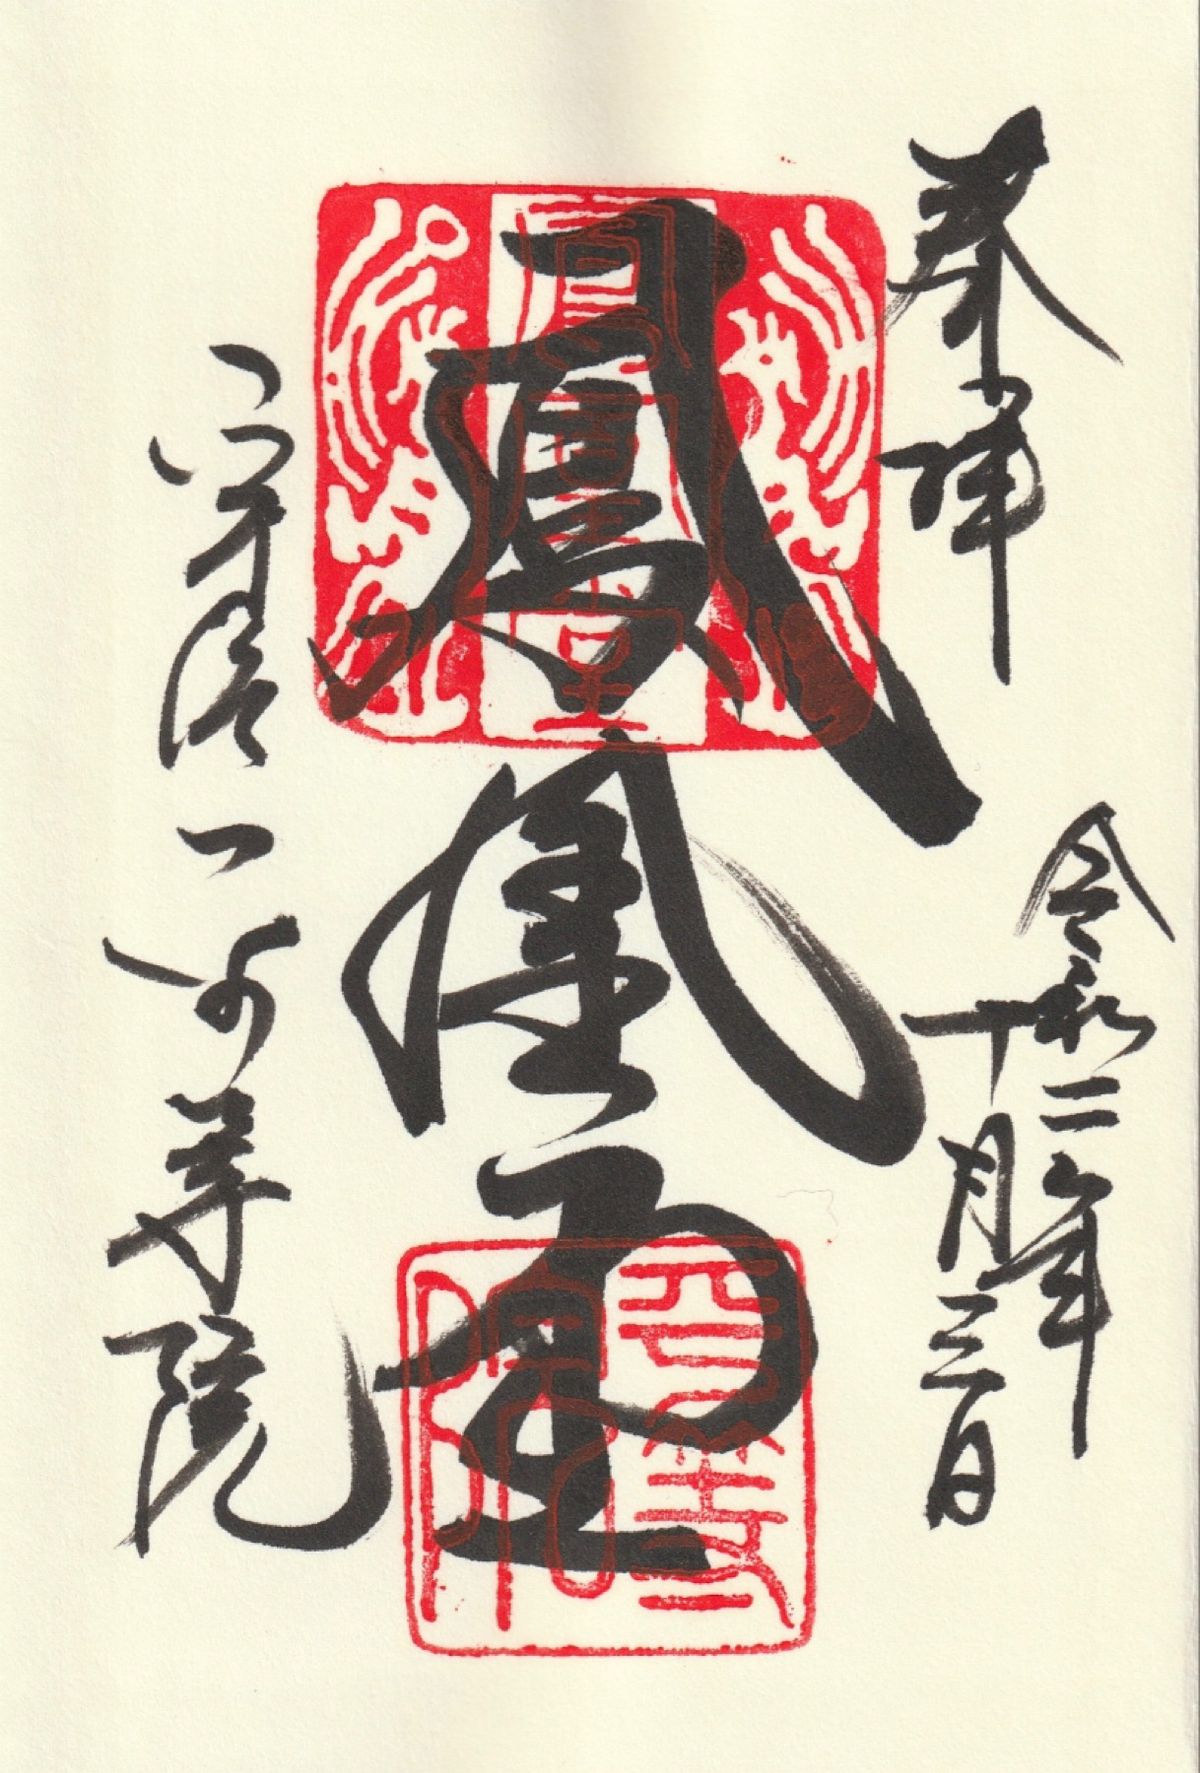 奉拝
令和二年
十月三日
鳳凰堂
宇治 平等院
鳳凰堂
平等
院印